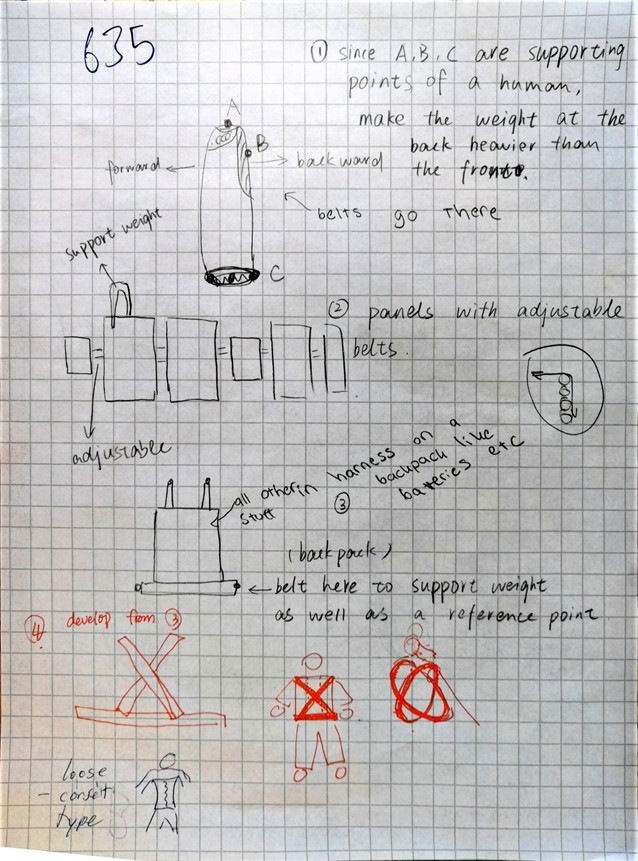 635
① since A, B, C are supporting
points of a human,
make the weight at the
back heavier than
the front.
A
B
forward
backward
belts go There
C
support weight
② panels with adjustable
belts.
adjustable
all other
stuff
in harness on a
backpack like
batteries etc
③
(backpack)
belt here to support weight
as well as a reference point
④ develop from ③
loose
type